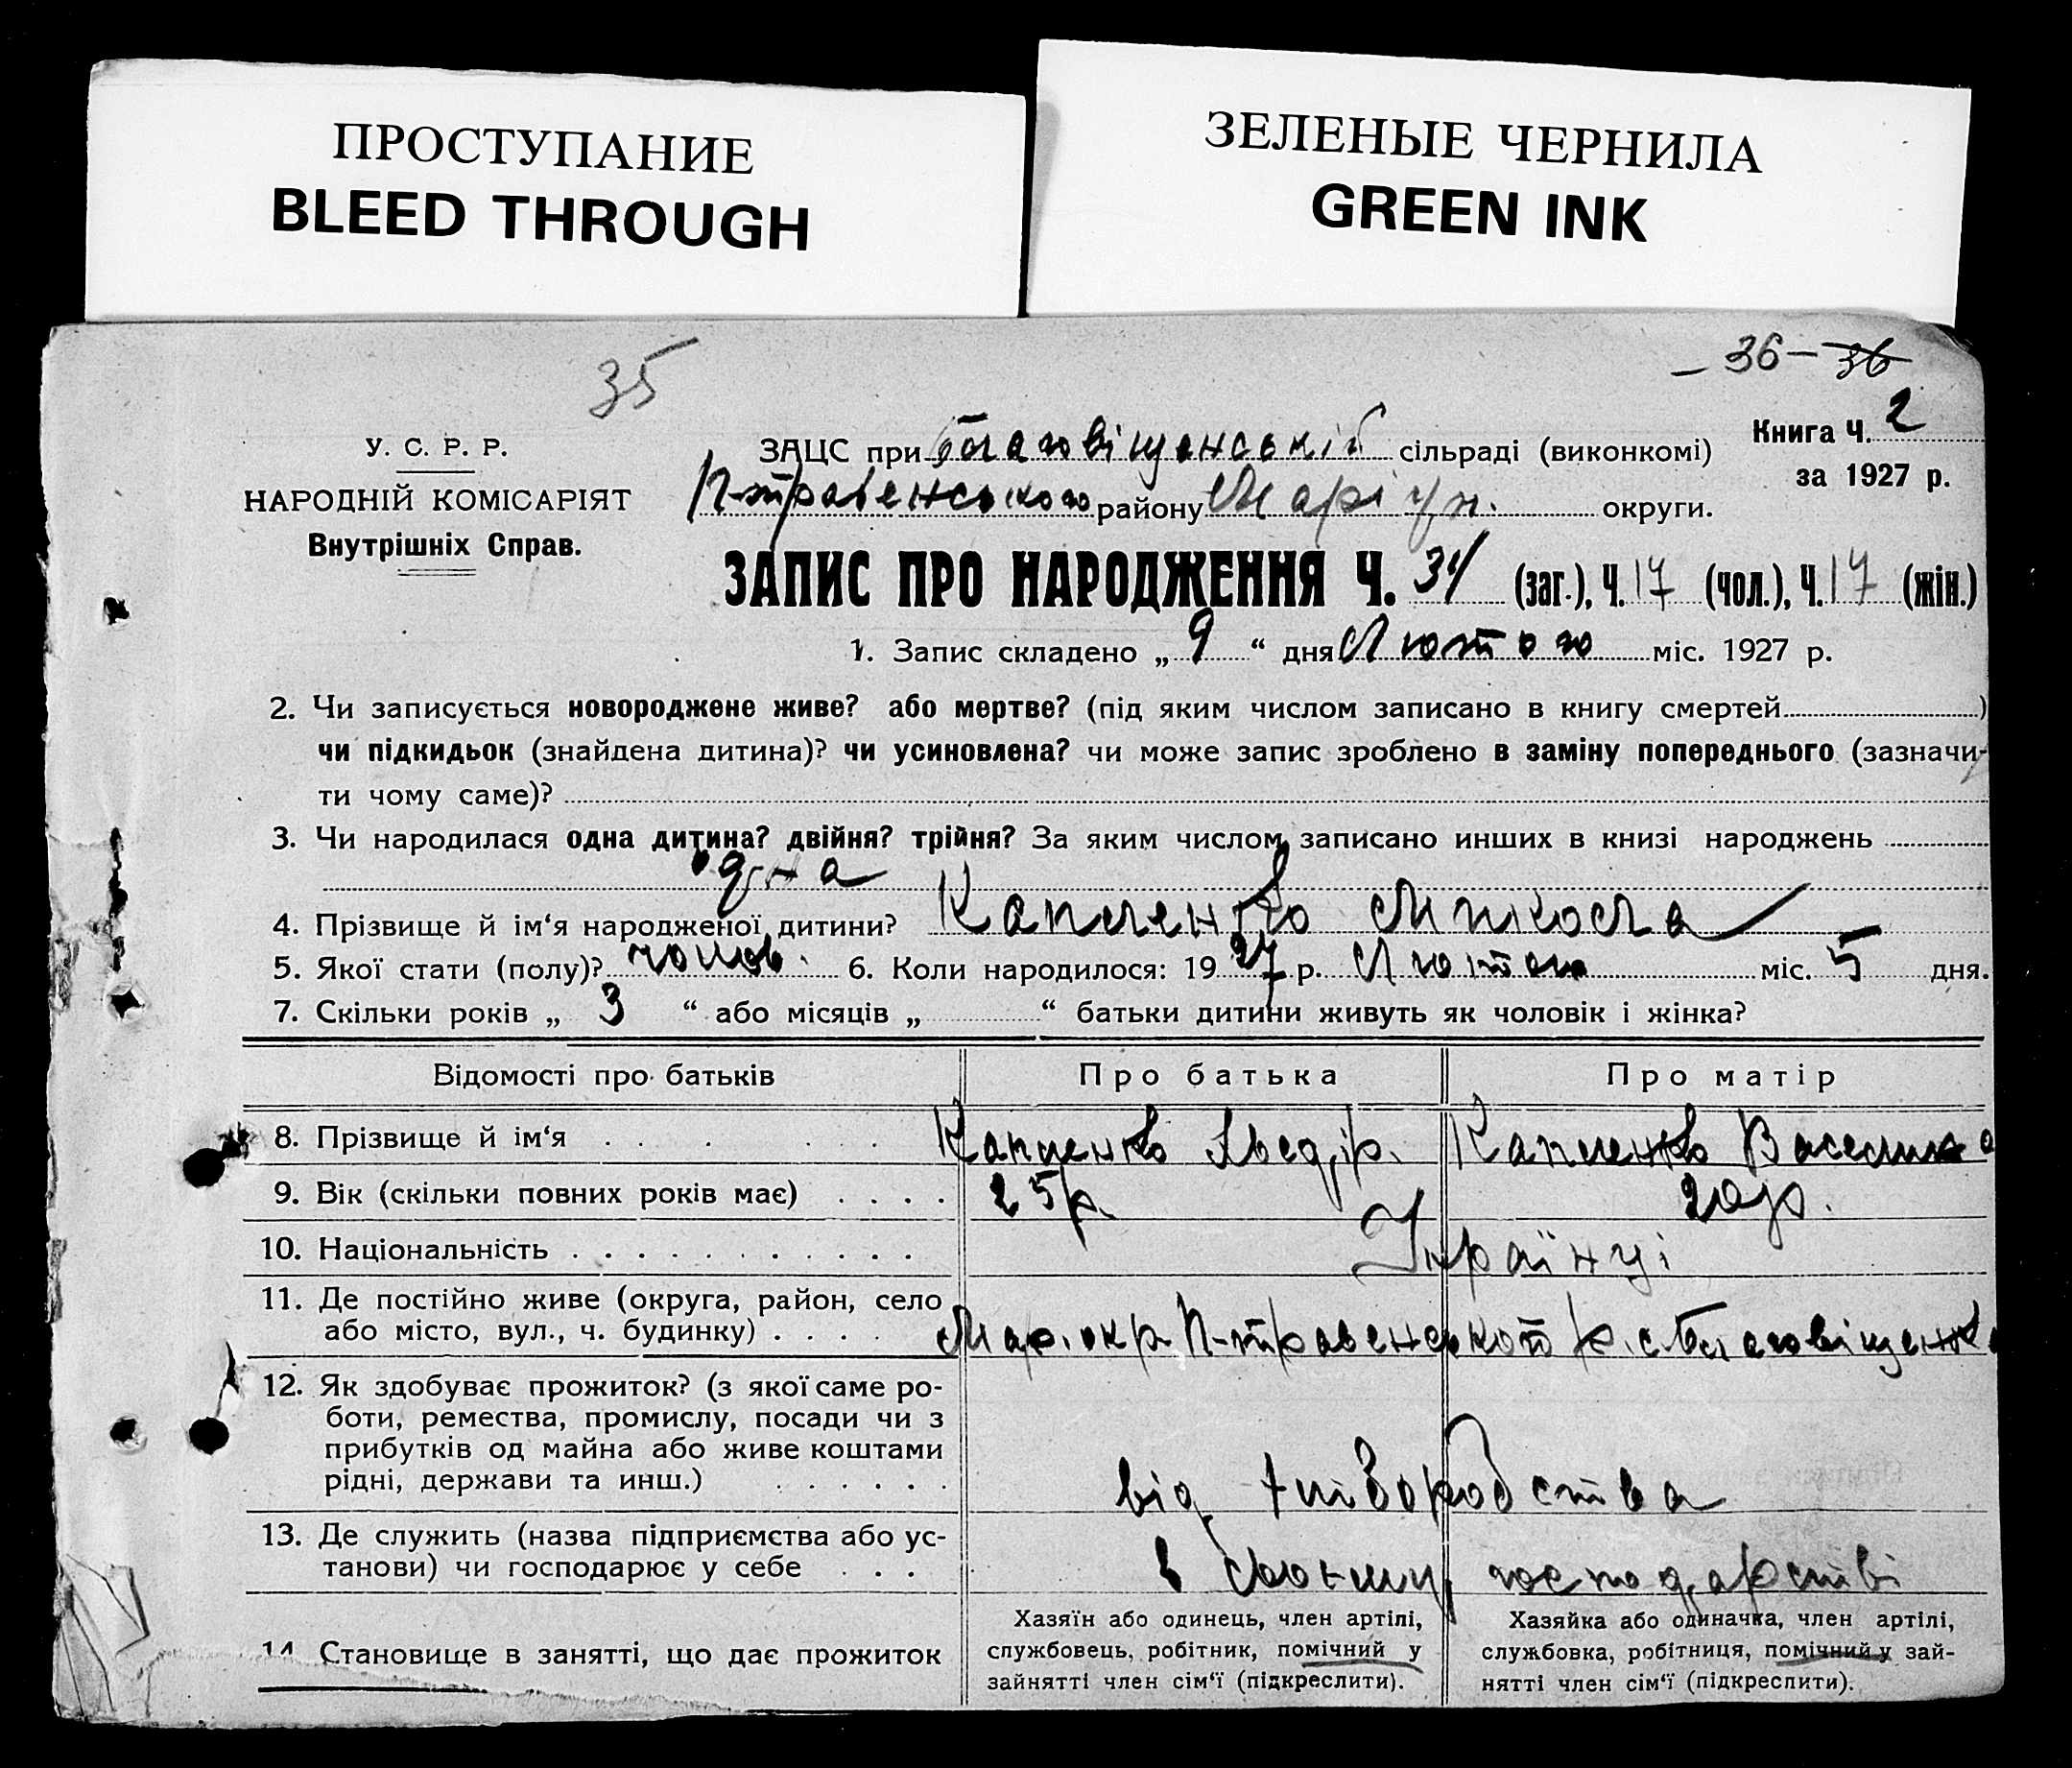 ПРОСТУПАНИЕ
BLEED THROUGH
ЗЕЛЕНЫЕ ЧЕРНИЛА
GREEN INK
35
– 36 – 36
У. С. Р. Р.
НАРОДНІЙ КОМІСАРІЯТ
Внутрішніх Справ.
Книга Ч. 2
за 1927 р.
ЗАЦС при Благовіщенській сільраді (виконкомі)
району Маріуп. округи.
ЗАПИС ПРО НАРОДЖЕННЯ Ч. 34 (заг.), Ч. 17 (чол.), Ч. 17 (жін.)
1. Запис складено „ 9 “ дня Лютого міс. 1927 р.
2. Чи записується новороджене живе? або мертве? (під яким числом записано в книгу смертей )
чи підкидьок (знайдена дитина)? чи усиновлена? чи може запис зроблено в заміну попереднього (зазначи-
ти чому саме)?
3. Чи народилася одна дитина? двійня? трійня? За яким числом записано инших в книзі народжень
одна
4. Прізвище й ім‘я народженої дитини? Капленко Микола
5. Якої стати (полу)? чолов. 6. Коли народилося: 1927 р. Лютого міс. 5 дня.
7. Скільки років „ 3 “ або місяців „ “ батьки дитини живуть як чоловік і жінка?
Відомості про батьків Про батька Про матір
8. Прізвище й ім‘я Капленко Хведір. Капленко Василина
9. Вік (скільки повних років має) 25 р. 20 р.
10. Національність Українці
11. Де постійно живе (округа, район, село
або місто, вул., ч. будинку) Мар. окр. р. с. Благовіщенка
12. Як здобуває прожиток? (з якої саме ро-
боти, ремества, промислу, посади чи з
прибутків од майна або живе коштами
рідні, держави та инш.) від хліборобства
13. Де служить (назва підприємства або ус-
танови) чи господарює у себе в своєму господарстві
14. Становище в занятті, що дає прожиток
Хазяїн або одинець, член артілі,
службовець, робітник, помічний у
зайнятті член сім‘ї (підкреслити).
Хазяйка або одиначка, член артілі,
службовка, робітниця, помічний у зай-
нятті член сім‘ї (підкреслити).